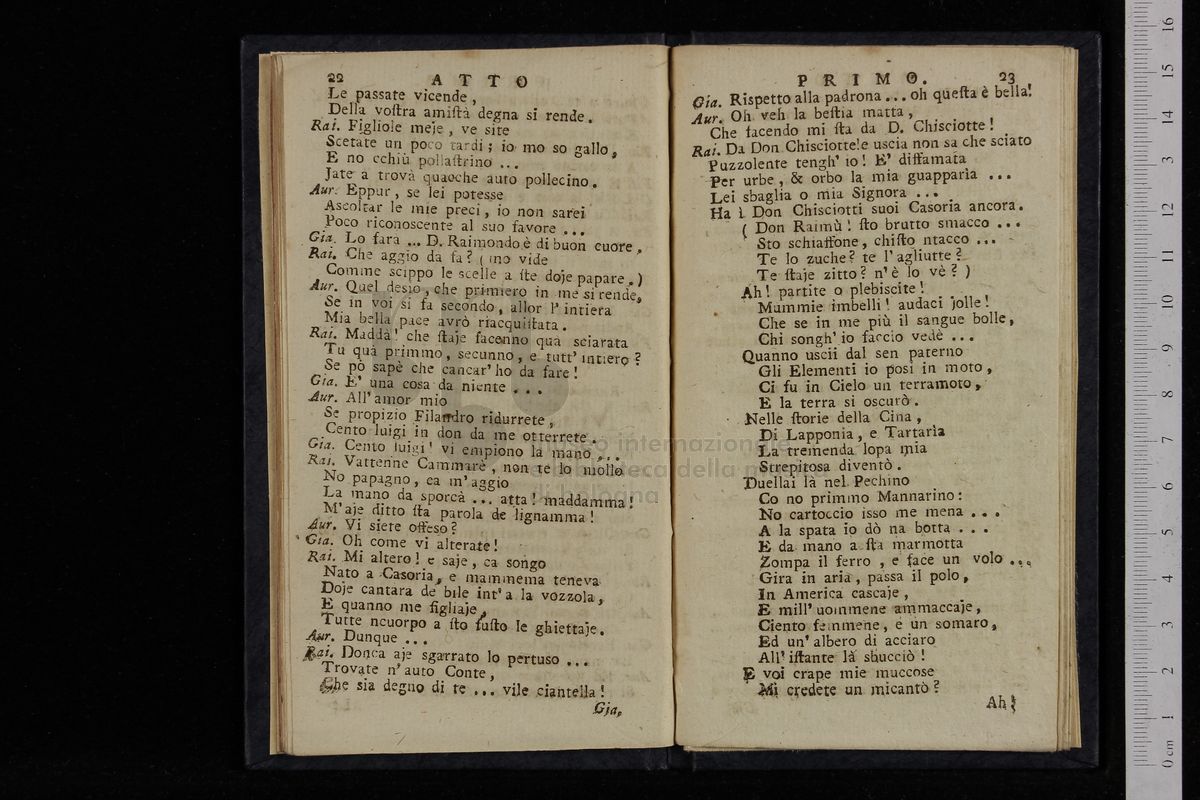 22 ATTO
Le passate vicende,
Della voſtra amiſtà degna si rende.
Rai. Figliole meje, ve site
Scetate un poco tardi; io mo so gallo,
E no cchiù pollaſtrino ...
Jate a trovà quacche auto pollecino.
Aur. Eppur, se lei potesse
Ascoltar le mie preci, io non sarei
Poco riconoscente al suo favore ...
Gia. Lo fara ... D. Raimondo è di buon cuore.
Rai. Che aggio da fa? (mo vide
Comme scippo le scelle a ſte doje papare.)
Aur. Quel desio, che primiero in me si rende,
Se in voi si fa secondo, allor l' intiera
Mia bella pace avrò riacquiſtata.
Rai. Maddà! che ſtaje facenno qua sciarata
Tu quà primmo, secunno, e tutt' intiero?
Se pò sapè che cancar' ho da fare!
Gia. E' una cosa da niente ...
Aur. All' amor mio
Se propizio Filandro ridurrete,
Cento luigi in don da me otterrete.
Gia. Cento luigi! vi empiono la mano ...
Rai. Vattenne Cammarè, non te lo mollo
No papagno, ca m' aggio
La mano da sporcà ... atta! maddamma!
M' aje ditto ſta parola de lignamma!
Aur. Vi siete offeso?
Gia. Oh come vi alterate!
Rai. Mi altero! e saje, ca songo
Nato a Casoria, e mammema teneva
Doje cantara de bile int' a la vozzola,
E quanno me figliaje,
Tutte ncuorpo a ſto fuſto le ghiettaje.
Aur. Dunque ...
Rai. Donca aje sgarrato lo pertuso ...
Trovate n' auto Conte,
Che sia degno di te ... vile ciantella!
Gia,
PRIMO. 23
Gia. Rispetto alla padrona ... oh queſta è bella!
Aur. Oh veh la beſtia matta,
Che facendo mi ſta da D. Chisciotte!
Rai. Da Don Chisciotte! e uscia non sa che sciato
Puzzolente tengh' io! E' diffamata
Per urbe, & orbo la mia guapparìa ...
Lei sbaglia o mia Signora ...
Ha i Don Chisciotti suoi Casoria ancora.
( Don Raimù! ſto brutto smacco ...
Sto schiaffone, chiſto ntacco ...
Te lo zuche? te l' agliutte?
Te ſtaje zitto? n' è lo vè? )
Ah! partite o plebiscite!
Mummie imbelli! audaci jolle!
Che se in me più il sangue bolle,
Chi songh' io faccio vedè ...
Quanno uscii dal sen paterno
Gli Elementi io posi in moto,
Ci fu in Cielo un terramoto,
E la terra si oscurò.
Nelle ſtorie della Cina,
Di Lapponia, e Tartarìa
La tremenda lopa mia
Strepitosa diventò.
Duellai là nel Pechino
Co no primmo Mannarino:
No cartoccio isso me mena ...
A la spata io dò na botta ...
E da mano a ſta marmotta
Zompa il ferro, e face un volo ...
Gira in aria, passa il polo,
In America cascaje,
E mill' uommene ammaccaje,
Ciento femmene, e un somaro,
Ed un' albero di acciaro
All' iſtante là sbucciò!
E voi crape mie muccose
Mi credete un micantò?
Ah!
museo internazionale
e biblioteca della musica
di bologna
16
15
14
13
12
11
10
9
8
7
6
5
4
3
2
1
0 cm